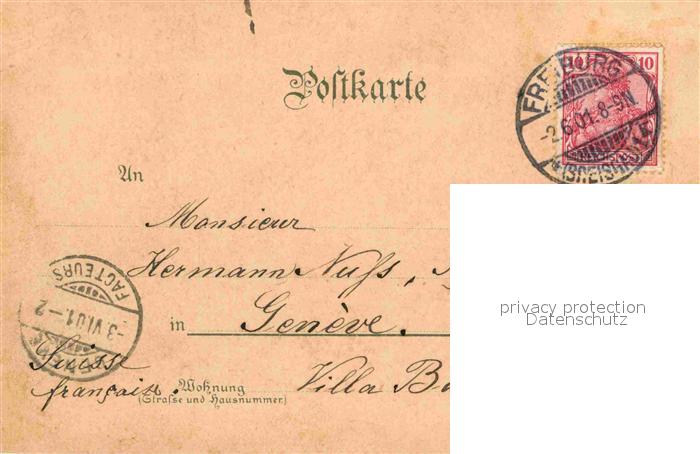 Postkarte
10 10
FREIBURG
-2.6.01.8-9N.
*(BREISGAU)
An
Monsieur
Hermann Nuß,
in Genève.
FACTEURS
-3.VI.01.-2
Suisse
française.
Wohnung
(Straße und Hausnummer)
Villa
privacy protection
Datenschutz